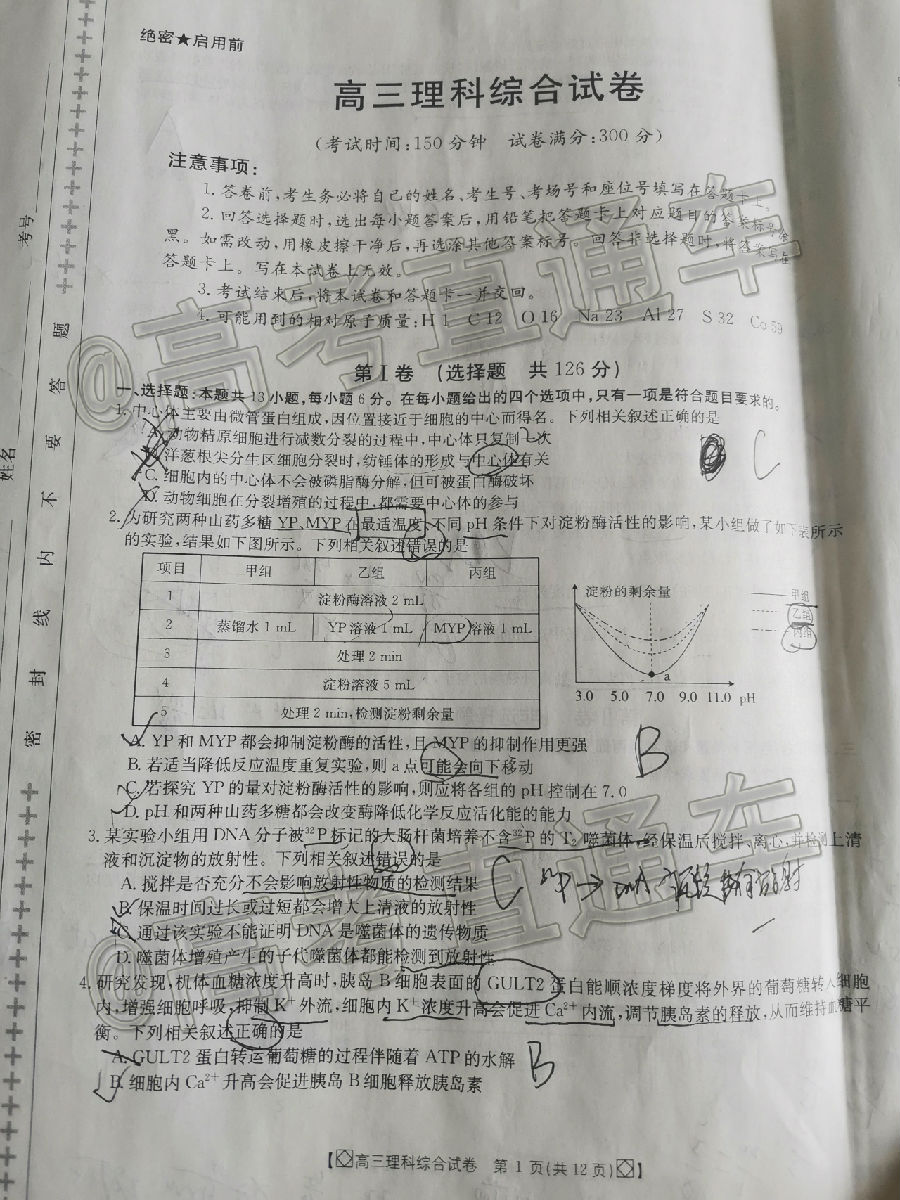 绝密★启用前
高三理科综合试卷
(考试时间:150分钟 试卷满分:300分)
注意事项:
1.答卷前,考生务必将自己的姓名、考生号、考场号和座位号填写在答题卡上。
2.回答选择题时,选出每小题答案后,用铅笔把答题卡上对应题目的答案标号涂
黑。如需改动,用橡皮擦干净后,再选涂其他答案标号。回答非选择题时,将答案写在
答题卡上。写在本试卷上无效。
3.考试结束后,将本试卷和答题卡一并交回。
4.可能用到的相对原子质量:H 1 C 12 O 16 Na 23 Al 27 S 32 Co 59
第Ⅰ卷 (选择题 共126分)
一、选择题:本题共13小题,每小题6分。在每小题给出的四个选项中,只有一项是符合题目要求的。
1.中心体主要由微管蛋白组成,因位置接近于细胞的中心而得名。下列相关叙述正确的是
A.动物精原细胞进行减数分裂的过程中,中心体只复制一次
B.洋葱根尖分生区细胞分裂时,纺锤体的形成与中心体有关
C.细胞内的中心体不会被磷脂酶分解,但可被蛋白酶破坏
D.动物细胞在分裂增殖的过程中,都需要中心体的参与
C
2.为研究两种山药多糖YP、MYP在最适温度、不同pH条件下对淀粉酶活性的影响,某小组做了如下表所示
的实验,结果如下图所示。下列相关叙述错误的是
项目 甲组 乙组 丙组
1 淀粉酶溶液2 mL
2 蒸馏水1 mL YP溶液1 mL MYP溶液1 mL
3 处理2 min
4 淀粉溶液5 mL
5 处理2 min,检测淀粉剩余量
淀粉的剩余量
甲组
乙组
丙组
a
3.0 5.0 7.0 9.0 11.0 pH
A.YP和MYP都会抑制淀粉酶的活性,且MYP的抑制作用更强
B.若适当降低反应温度重复实验,则a点可能会向下移动
C.若探究YP的量对淀粉酶活性的影响,则应将各组的pH控制在7.0
D.pH和两种山药多糖都会改变酶降低化学反应活化能的能力
B
3.某实验小组用DNA分子被³²P标记的大肠杆菌培养不含³²P的T₂噬菌体,经保温后搅拌、离心,并检测上清
液和沉淀物的放射性。下列相关叙述错误的是
A.搅拌是否充分不会影响放射性物质的检测结果
B.保温时间过长或过短都会增大上清液的放射性
C.通过该实验不能证明DNA是噬菌体的遗传物质
D.噬菌体增殖产生的子代噬菌体都能检测到放射性
C
4.研究发现,机体血糖浓度升高时,胰岛B细胞表面的GULT2蛋白能顺浓度梯度将外界的葡萄糖转入细胞
内,增强细胞呼吸,抑制K⁺外流,细胞内K⁺浓度升高会促进Ca²⁺内流,调节胰岛素的释放,从而维持血糖平
衡。下列相关叙述正确的是
A.GULT2蛋白转运葡萄糖的过程伴随着ATP的水解
B.细胞内Ca²⁺升高会促进胰岛B细胞释放胰岛素
B
【高三理科综合试卷 第1页(共12页)】
考号
姓名
密封线内不要答题
@高考直通车
@高考直通车